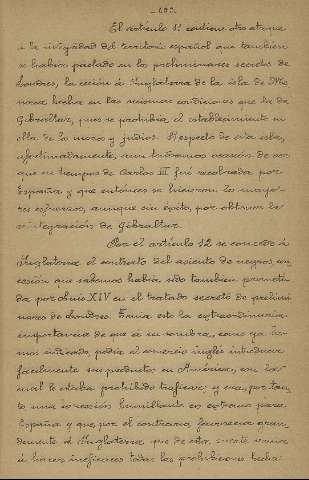 - 193 -
El artículo 11 contiene otro ataque
a la integridad del territorio español que tambien
se habia pactado en los preliminares secretos de
Londres, la cesión a Inglaterra de la isla de Me-
norca hecha en las mismas condiciones que la de
Gibraltar, pues se prohibia el establecimiento en
ella de los moros y judios. Respecto de esta isla,
afortunadamente, aun tendremos ocasión de ver
que en tiempos de Carlos III fué recobrada por
España y que entonces se hicieron los mayo-
res esfuerzos, aunque sin éxito, por obtener la
reintegración de Gibraltar.
Por el artículo 12 se concede á
Inglaterra el contrato del asiento de negros con-
cesión que sabemos habia sido tambien prometi-
da por Luis XIV en el tratado secreto de prelimi-
nares de Londres. Tenia esto la extraordinaria
importancia de que a su sombra, como ya he-
mos indicado, podia el comercio inglés introducir
facilmente sus productos en América, con la
cual le estaba prohibido traficar; y era, por tan-
to una concesión humillante en extremo para
España y que por el contrario, favorecia gran-
demente a Inglaterra que de esta suerte venia
á hacer ineficaces todas las prohibiciones hechas